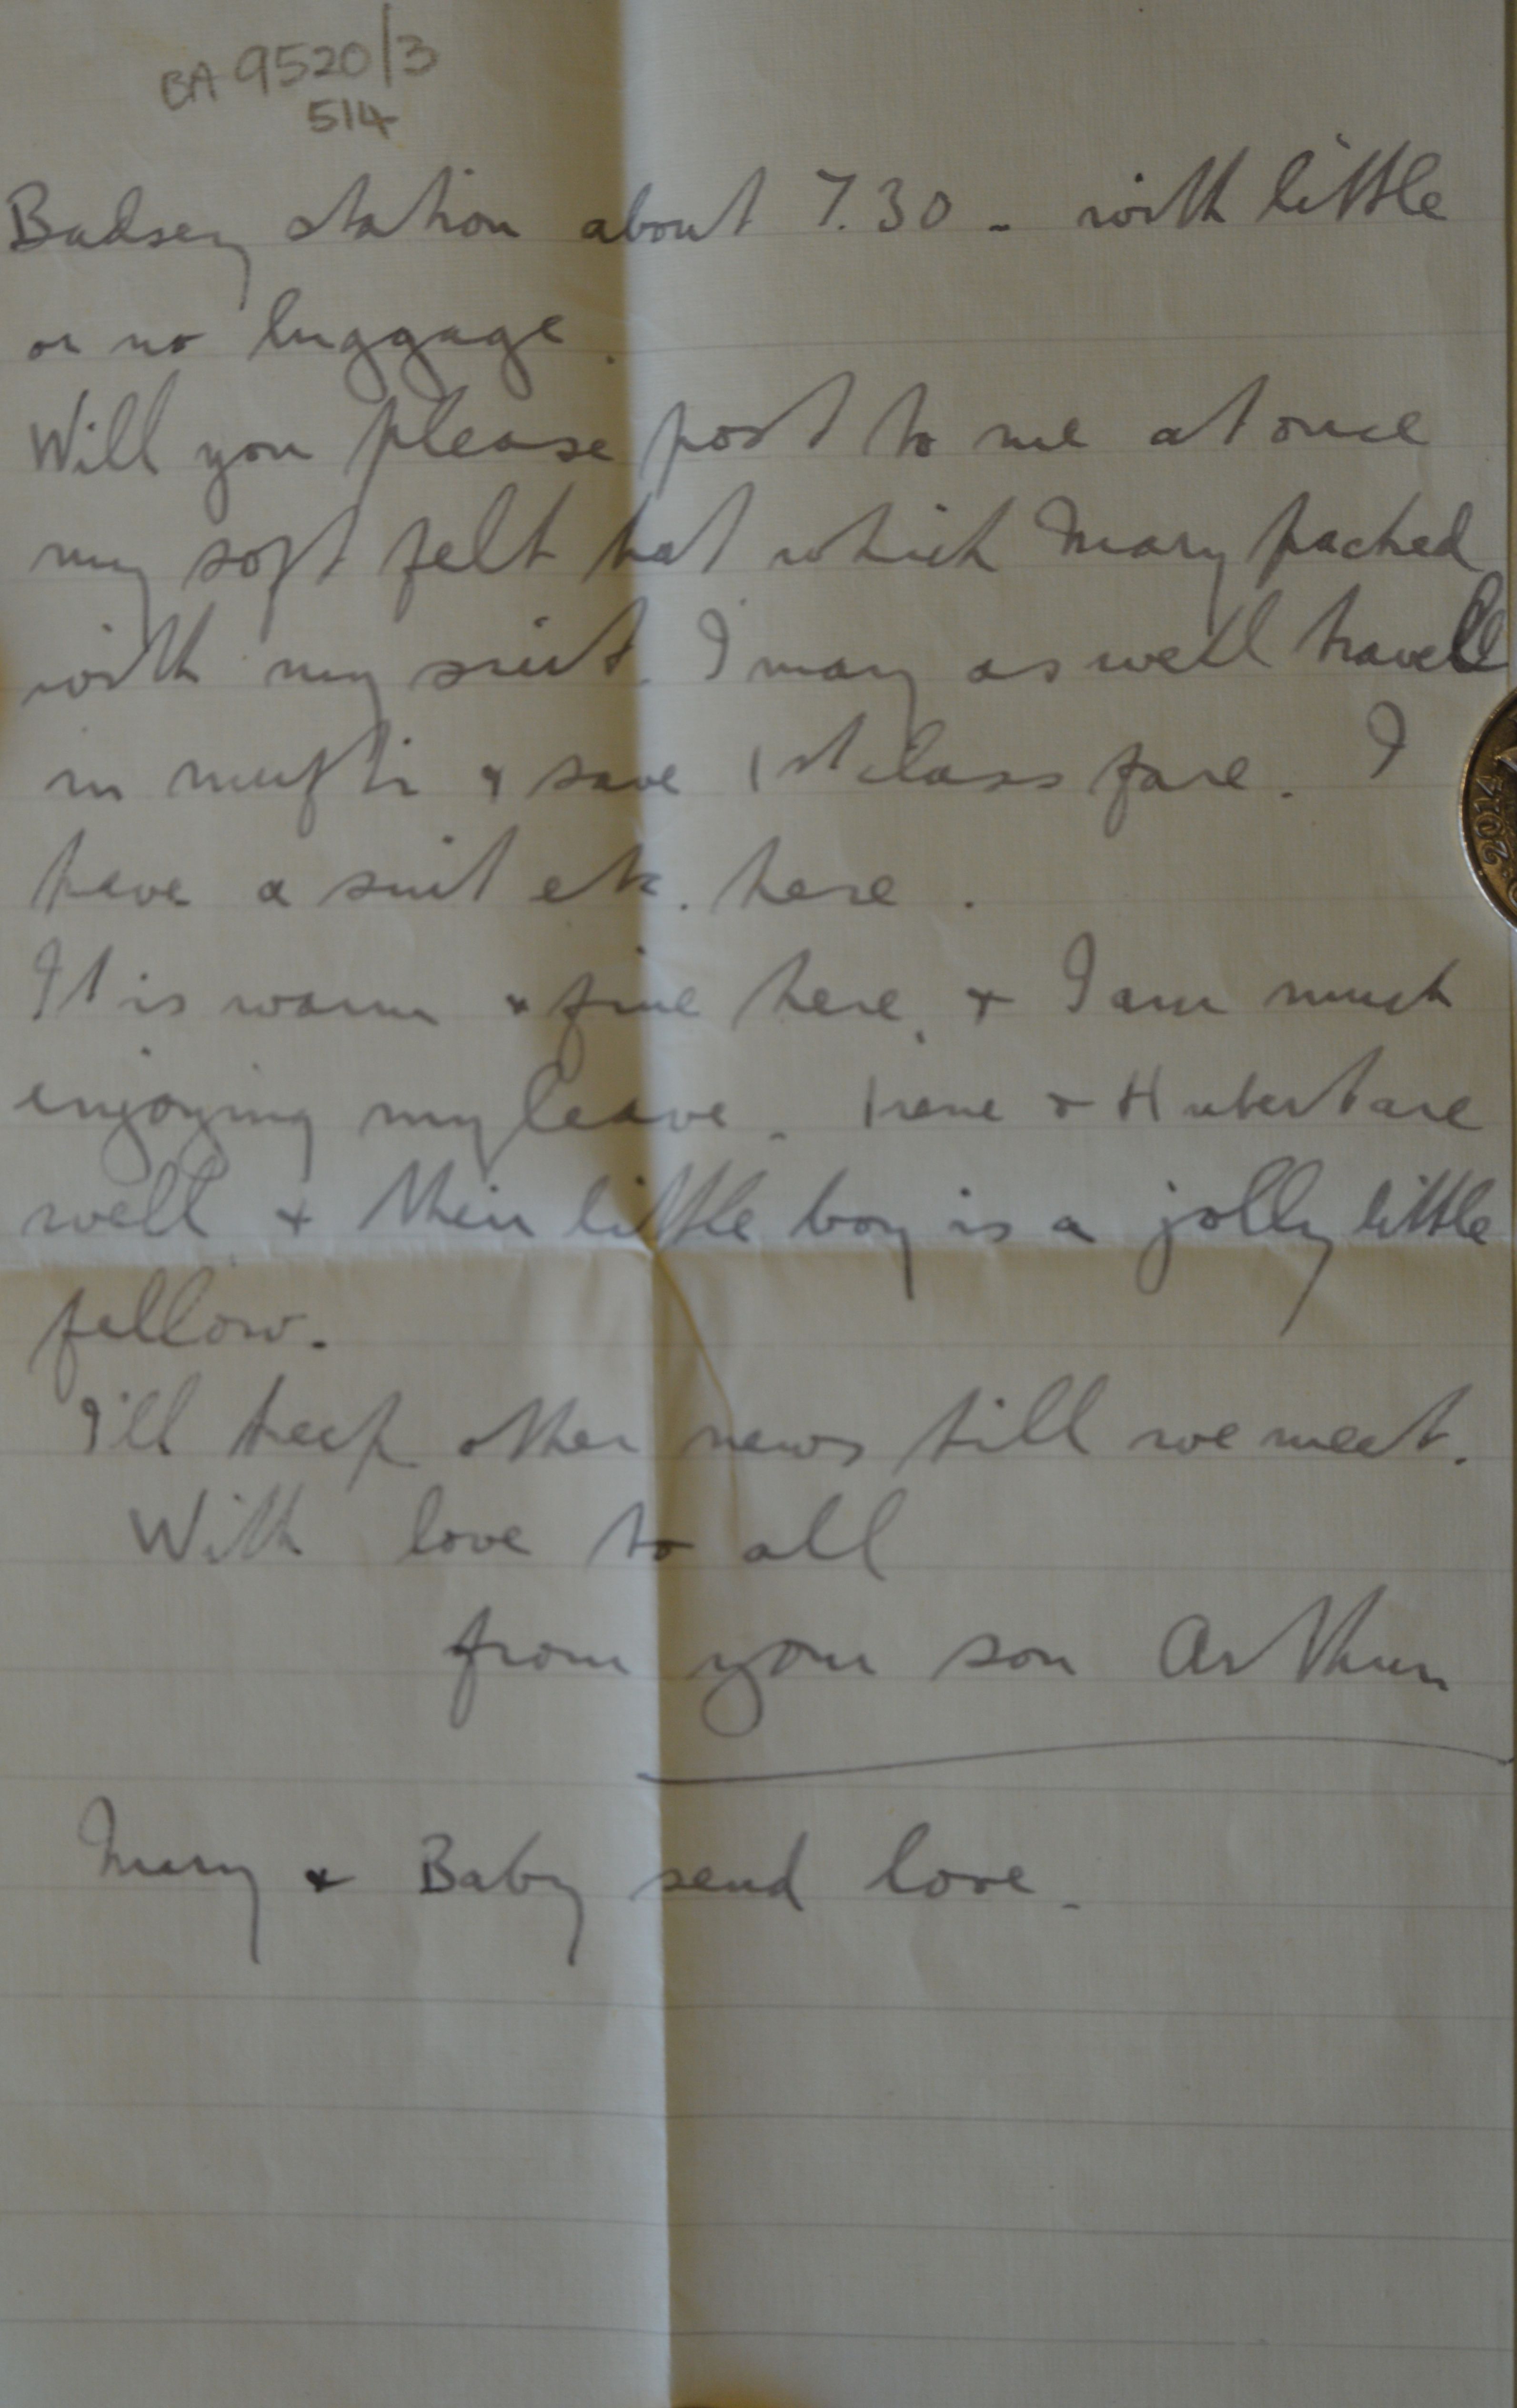 BA 9520/3
514
Badsey station about 7.30 - with little
or no luggage.
Will you please post to me at once
my soft felt hat which Mary packed
with my suit. I may as well travell
in mufti & save 1st class fare. I
have a suit etc. here.
It is warm & fine here, & I am much
enjoying my leave. Irene & Hubert are
well & their little boy is a jolly little
fellow.
I'll keep other news till we meet.
With love to all
from your son Arthur
Mary & Baby send love.
2014